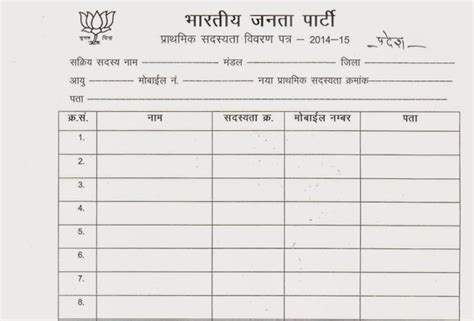 भारतीय जनता पार्टी
प्राथमिक सदस्यता विवरण पत्र – 2014-15 प्रदेश
सक्रिय सदस्य नाम मंडल जिला
आयु मोबाईल नं. नया प्राथमिक सदस्यता क्रमांक
पता
क्र.सं. नाम सदस्यता क्र. मोबाईल नम्बर पता
1.
2.
3.
4.
5.
6.
7.
8.